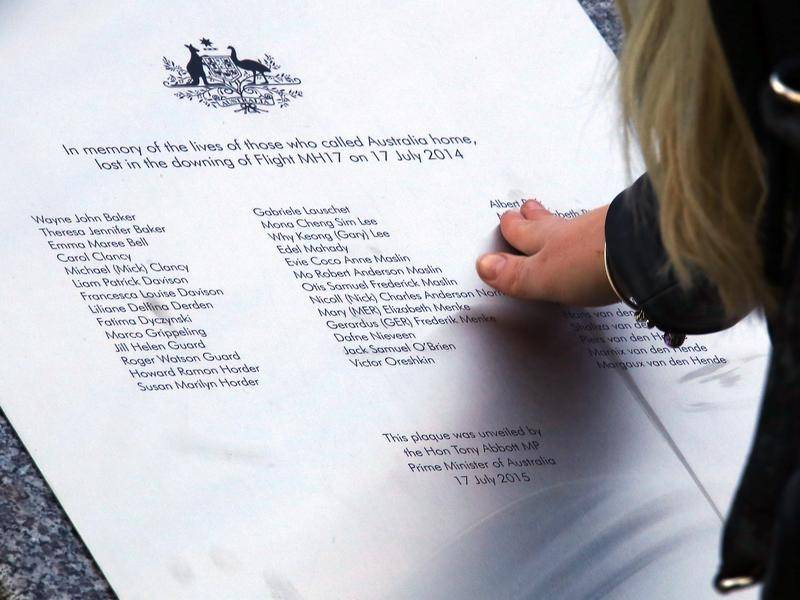 AUSTRALIA
In memory of the lives of those who called Australia home,
lost in the downing of Flight MH17 on 17 July 2014
Wayne John Baker
Theresa Jennifer Baker
Emma Maree Bell
Carol Clancy
Michael (Mick) Clancy
Liam Patrick Davison
Francesca Louise Davison
Liliane Delfina Derden
Fatima Dyczynski
Marco Grippeling
Jill Helen Guard
Roger Watson Guard
Howard Ramon Horder
Susan Marilyn Horder
Gabriele Lauschet
Mona Cheng Sim Lee
Why Keong (Gary) Lee
Edel Mahady
Evie Coco Anne Maslin
Mo Robert Anderson Maslin
Otis Samuel Frederick Maslin
Nicoll (Nick) Charles Anderson
Mary (MER) Elizabeth Menke
Gerardus (GER) Frederik Menke
Dafne Nieveen
Jack Samuel O'Brien
Victor Oreshkin
Albert
Hans van
Shaliza van den
Piers van den
Marnix van den Hende
Margaux van den Hende
This plaque was unveiled by
the Hon Tony Abbott MP
Prime Minister of Australia
17 July 2015